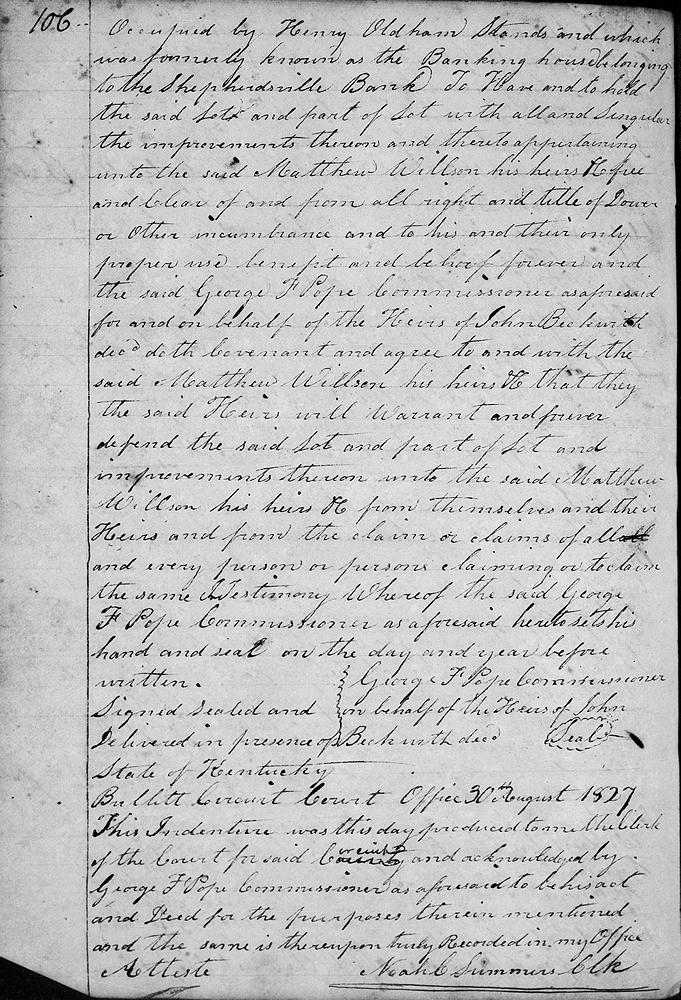 106
Occupied by Henry Oldham Stands and which
was formerly known as the Banking house belonging
to the Shepherdsville Bank To Have and to hold
the said Lot and part of Lot with all and Singular
the improvements thereon and thereto appertaining
unto the said Matthew Willson his heirs &c free
and Clear of and from all right and title of Dower
or Other incumbrance and to his and their only
proper use benefit and behoof forever and
the said George F Pope Commissioner as aforesaid
for and on behalf of the Heirs of John Beckwith
decd doth Covenant and agree to and with the
said Matthew Willson his heirs &c that they
the said Heirs will Warrant and forever
defend the said Lot and part of Lot and
improvements thereon unto the said Matthew
Willson his heirs &c from themselves and their
Heirs and from the claim or claims of all
and every person or persons claiming or to claim
the same In Testimony Whereof the said George
F Pope Commissioner as aforesaid hereto sets his
hand and seal on the day and year before
written. George F Pope Commissioner
Signed Sealed and on behalf of the Heirs of John
Delivered in presence of Beckwith decd Seal
State of Kentucky
Bullitt Circuit Court Office 30th August 1827
This Indenture was this day produced to me the Clerk
of the Court for said Circuit and acknowledged by
George F Pope Commissioner as aforesaid to be his act
and Deed for the purposes therein mentioned
and the same is thereupon truly Recorded in my Office
Atteste Noah C Summers Clk